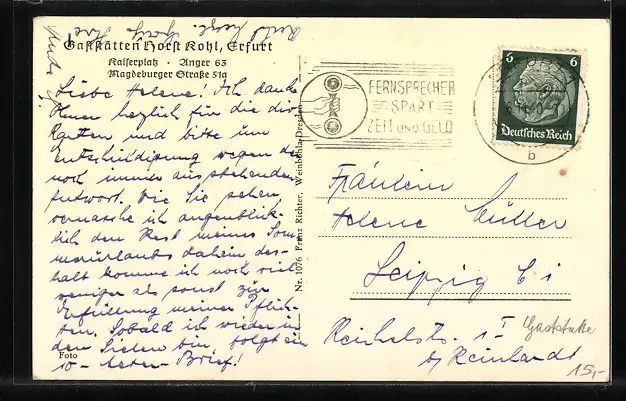 Gaststätten Horst Kohl, Erfurt
Kaiserplatz · Anger 63
Magdeburger Straße 51a
Liebe Helene! Ich danke
Ihnen herzlich für die div.
Karten und bitte um
Entschuldigung wegen der
noch immer ausstehenden
Antwort. Wie Sie sehen
vernasche ich augenblick-
lich den Rest meines Som-
merurlaubs daheim des-
halb komme ich noch viel
weniger als sonst zur
Erfüllung meiner Pflich-
ten. Sobald ich wieder in
den Sielen bin folgt ein
10-Seiten-Brief!
Foto
Nr. 1076 Franz Richter, Weinböhla-Dresden
FERNSPRECHER
SPART
ZEIT UND GELD
6 6
Deutsches Reich
b
Fräulein
Helene Müller
Leipzig C 1
Reichelstr. 1 I
b/ Reinhardt
Gaststätte
15,-